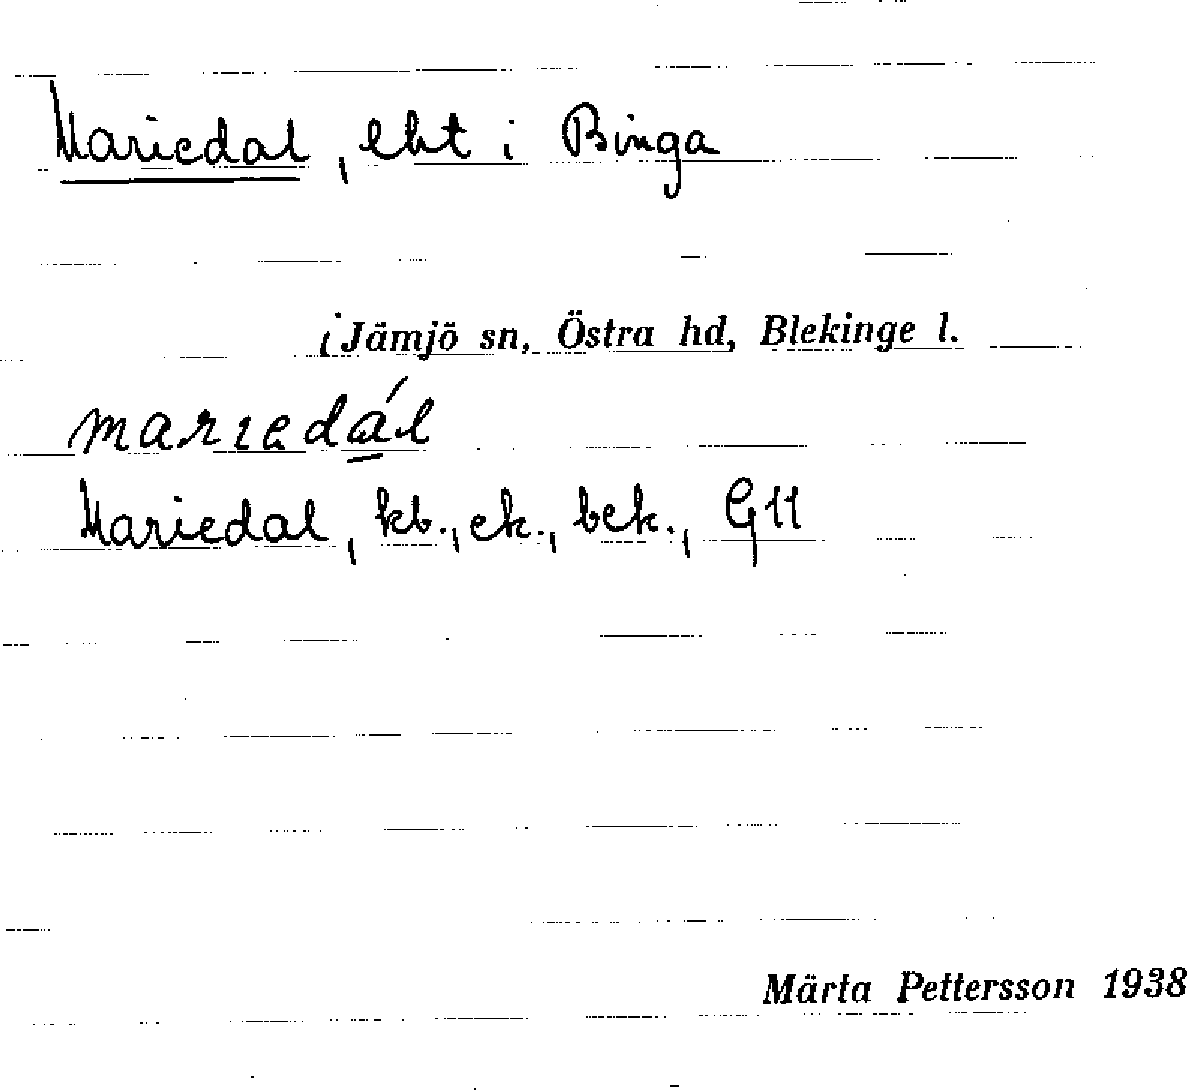 Mariedal, eht i Binga
i Jämjö sn, Östra hd, Blekinge l.
marıedál
Mariedal, kb., ek., bek., G11
Märta Pettersson 1938